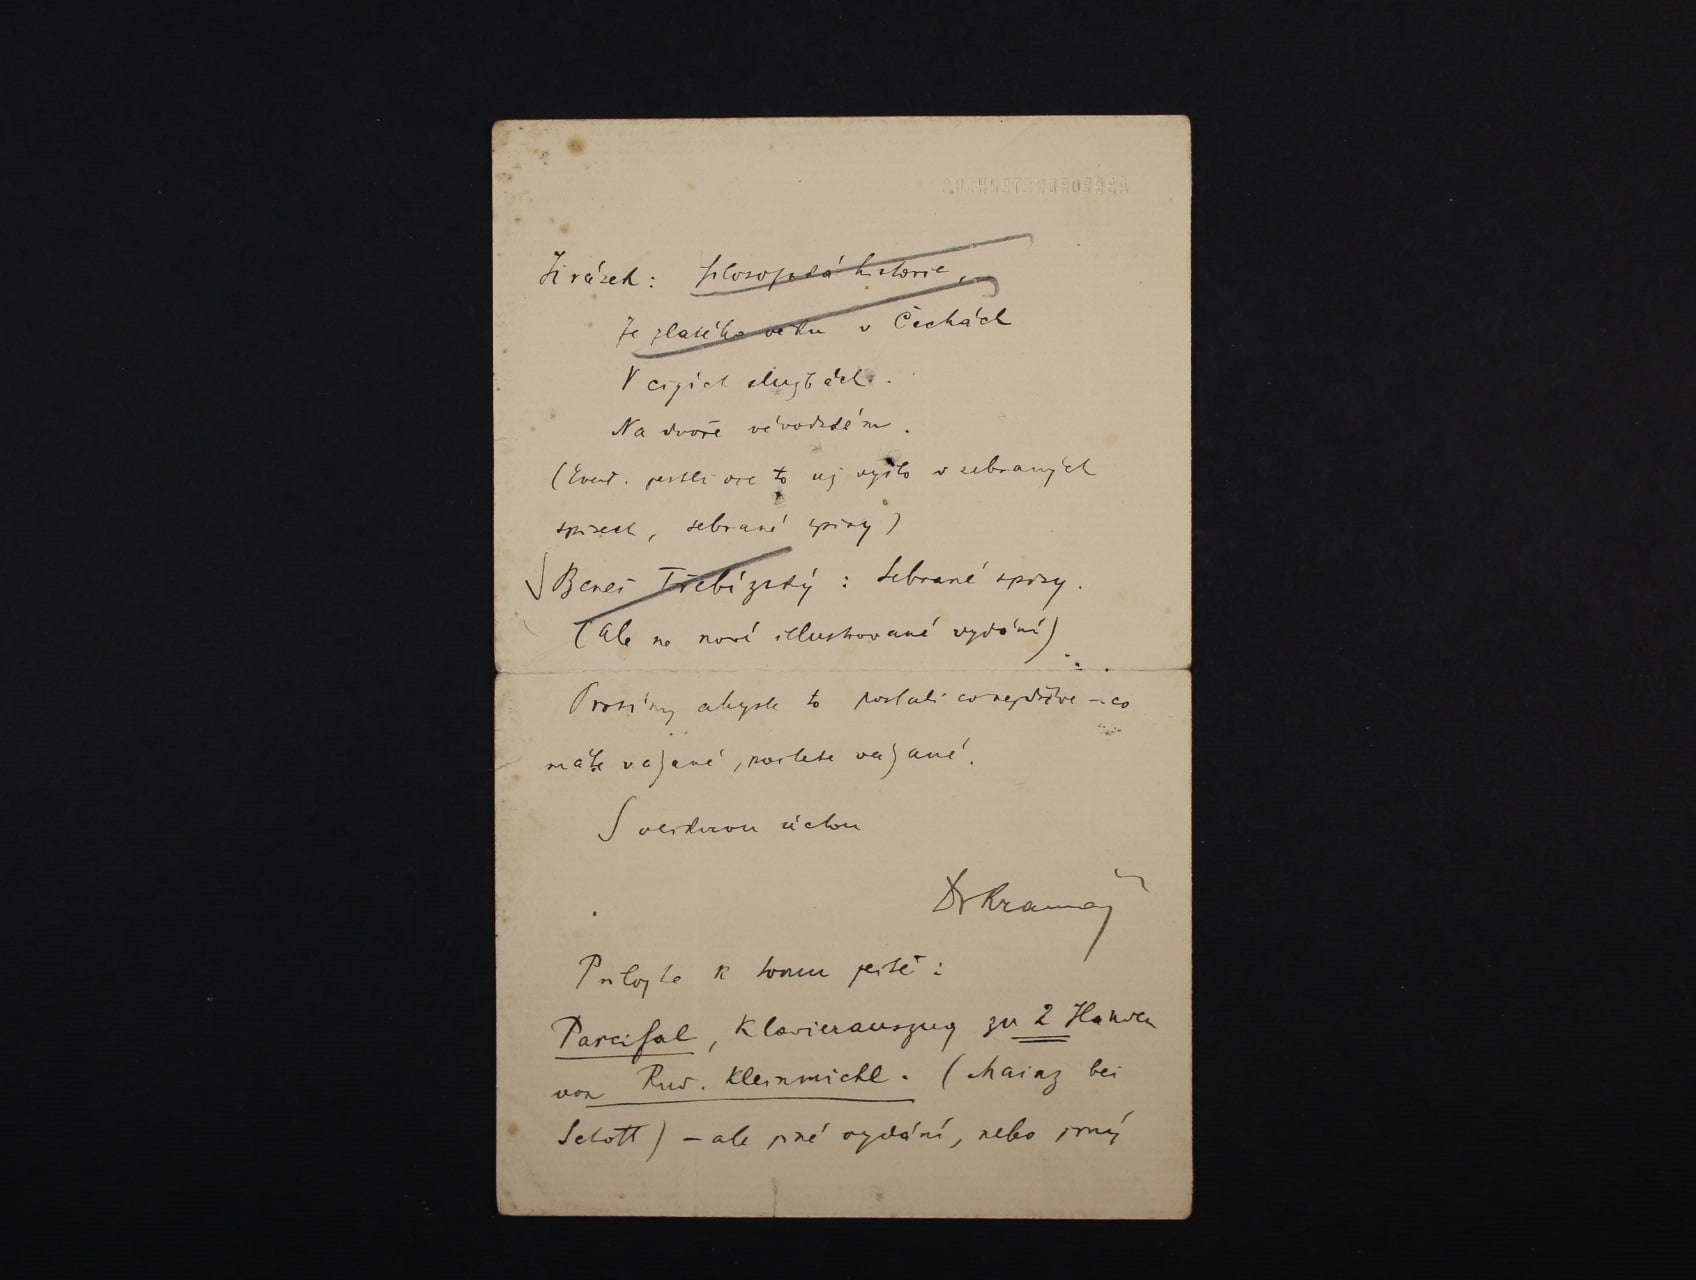 Jirásek: filosofská historie,
Ze zlatého věku v Čechách
V cizích službách.
Na dvoře vévodském.
(Event. jestli vše to již vyšlo v sebraných
spisech, sebrané spisy)
Beneš Třebízský: Sebrané spisy.
(ale ne nové illustrované vydání)
Prosíme abyste to poslali co nejdříve – co
máte vázané, pošlete vázané.
S veškerou úctou
Dr Kramář
Přiložte k tomu ještě:
Parcifal, Klavierauszug zu 2 Händen
von Rud. Kleinmichl. (Mainz bei
Schott) – ale jiné vydání, nebo jiný